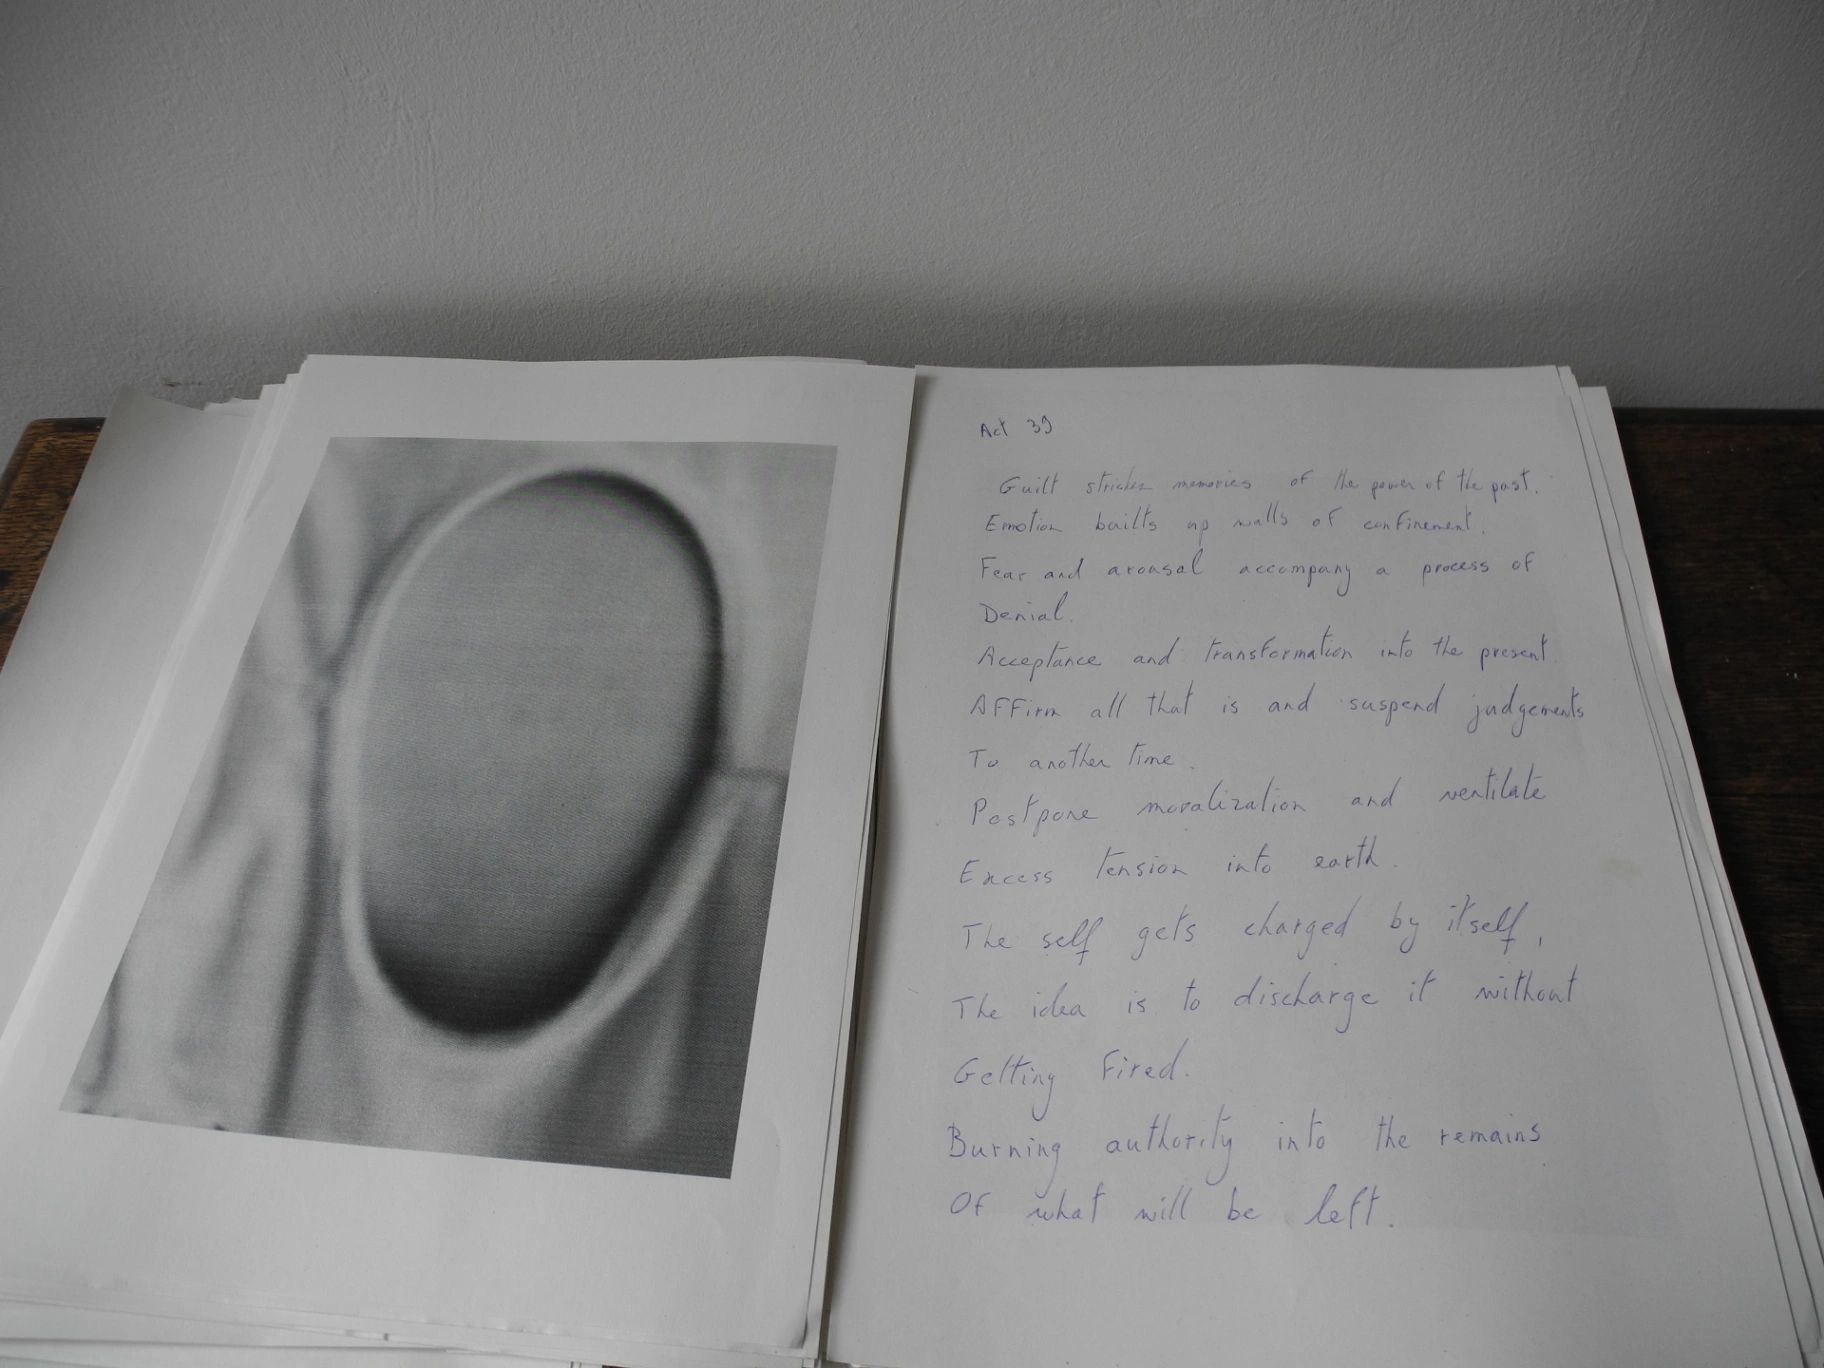 Act 39
Guilt strickes memories of the power of the past.
Emotion builts up walls of confinement.
Fear and arousal accompany a process of
Denial.
Acceptance and transformation into the present
Affirm all that is and suspend judgements
To another time.
Postpone moralization and ventilate
Excess tension into earth.
The self gets charged by itself,
The idea is to discharge it without
Getting fired.
Burning authority into the remains
Of what will be left.